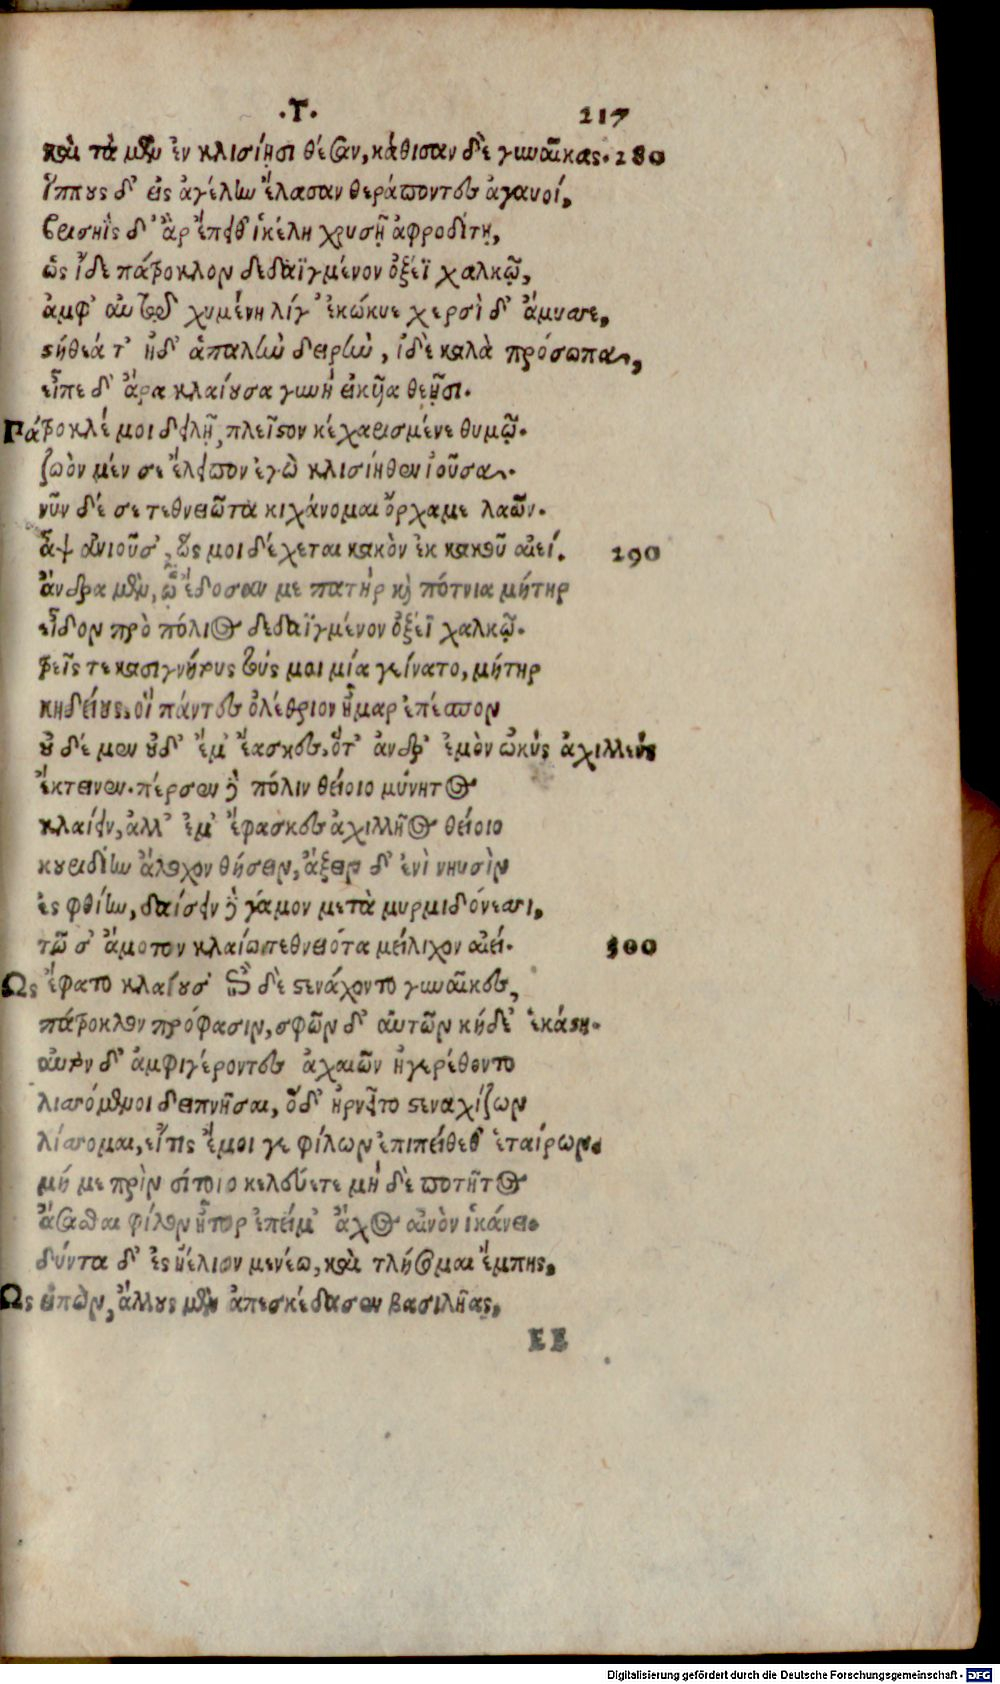 .Τ. 217
καὶ τὰ μὲν ἐν κλισίῃσι θέσαν, κάθισαν δὲ γυναῖκας. 280
ἵππους δ' εἰς ἀγέλην ἔλασαν θεράποντες ἀγαυοί.
βρισηῒς δ' ἂρ ἔπειτ' ἰκέλη χρυσῇ ἀφροδίτῃ,
ὡς ἴδε πάτροκλον δεδαϊγμένον ὀξέϊ χαλκῷ,
ἀμφ' αὐτῷ χυμένη λίγ' ἐκώκυε χερσὶ δ' ἄμυσσε,
στήθεά τ' ἠδ' ἁπαλὴν δειρὴν, ἰδὲ καλὰ πρόσωπα,
εἶπε δ' ἄρα κλαίουσα γυνὴ εἰκῦα θεῇσι.
Πάτροκλέ μοι δειλῇ πλεῖστον κεχαρισμένε θυμῷ.
ζωὸν μέν σε ἔλειπον ἐγὼ κλισίηθεν ἰοῦσα.
νῦν δέ σε τεθνειῶτα κιχάνομαι ὄρχαμε λαῶν.
ἂψ ἀνιοῦσ', ὥς μοι δέχεται κακὸν ἐκ κακοῦ αἰεί. 290
ἄνδρα μὲν, ᾧ ἔδοσαν με πατὴρ καὶ πότνια μήτηρ
εἶδον πρὸ πόλιος δεδαϊγμένον ὀξέϊ χαλκῷ.
τρεῖς τε κασιγνήτους τούς μοι μία γείνατο, μήτηρ
κηδείους, οἳ πάντες ὀλέθριον ἦμαρ ἐπέσπον
οὐ δέ μεν οὐδ' ἔμ' ἔασκες, ὅτ' ἄνδρ' ἐμὸν ὠκὺς ἀχιλλεὺς
ἔκτεινεν. πέρσεν δὲ πόλιν θείοιο μύνητος
κλαίειν, ἀλλ' ἐμ' ἔφασκες ἀχιλλῆος θείοιο
κουριδίην ἄλοχον θήσειν, ἄξειν δ' ἐνὶ νηυσὶν
ἐς φθίην, δαίσειν δὲ γάμον μετὰ μυρμιδόνεσσι,
τῶ σ' ἄμοτον κλαίω τεθνειότα μείλιχον αἰεί. 300
Ως ἔφατο κλαίουσ' ἐπὶ δὲ στενάχοντο γυναῖκες,
πάτροκλον πρόφασιν, σφῶν δ' αὐτῶν κήδε' ἑκάστη.
αὐτὸν δ' ἀμφιγέροντες ἀχαιῶν ἠγερέθοντο
λισσόμενοι δειπνῆσαι, ὅδ' ἠρνεῖτο στεναχίζων
λίσσομαι, εἴτις ἔμοι γε φίλων ἐπιπείθεθ' ἑταίρων.
μή με πρὶν σίτοιο κελεύετε μὴ δὲ ποτῆτος
ἄσασθαι φίλον ἦτορ ἐπεί μ' ἄχος αἰνὸν ἱκάνει.
δύντα δ' ἐς ἠέλιον μενέω, καὶ τλήσομαι ἔμπης.
Ως εἰπὼν, ἄλλους μὲν ἀπεσκέδασεν βασιλῆας,
EE
Digitalisierung gefördert durch die Deutsche Forschungsgemeinschaft - DFG